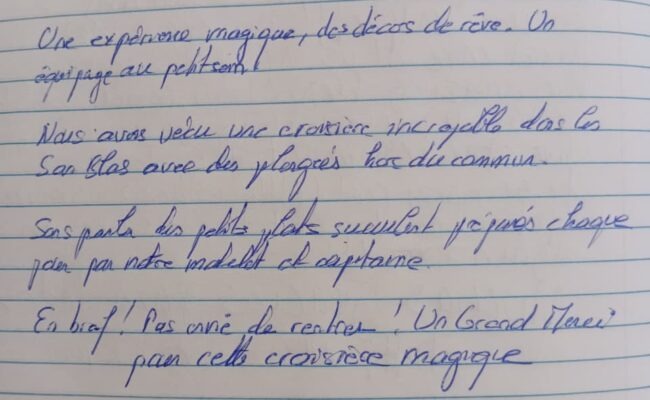 Une expérience magique, des décors de rêve. Un
équipage au petit soin!
Nous avons vécu une croisière incroyable dans les
San Blas avec des plongés hors du commun.
Sans parler des petits plats succulent préparés chaque
jour par notre matelot et capitaine.
En bref! Pas envie de rentrer! Un Grand Merci
pour cette croisière magique